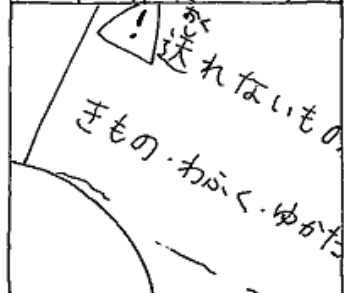 ⚠送れないもの
きもの・わふく・ゆかた